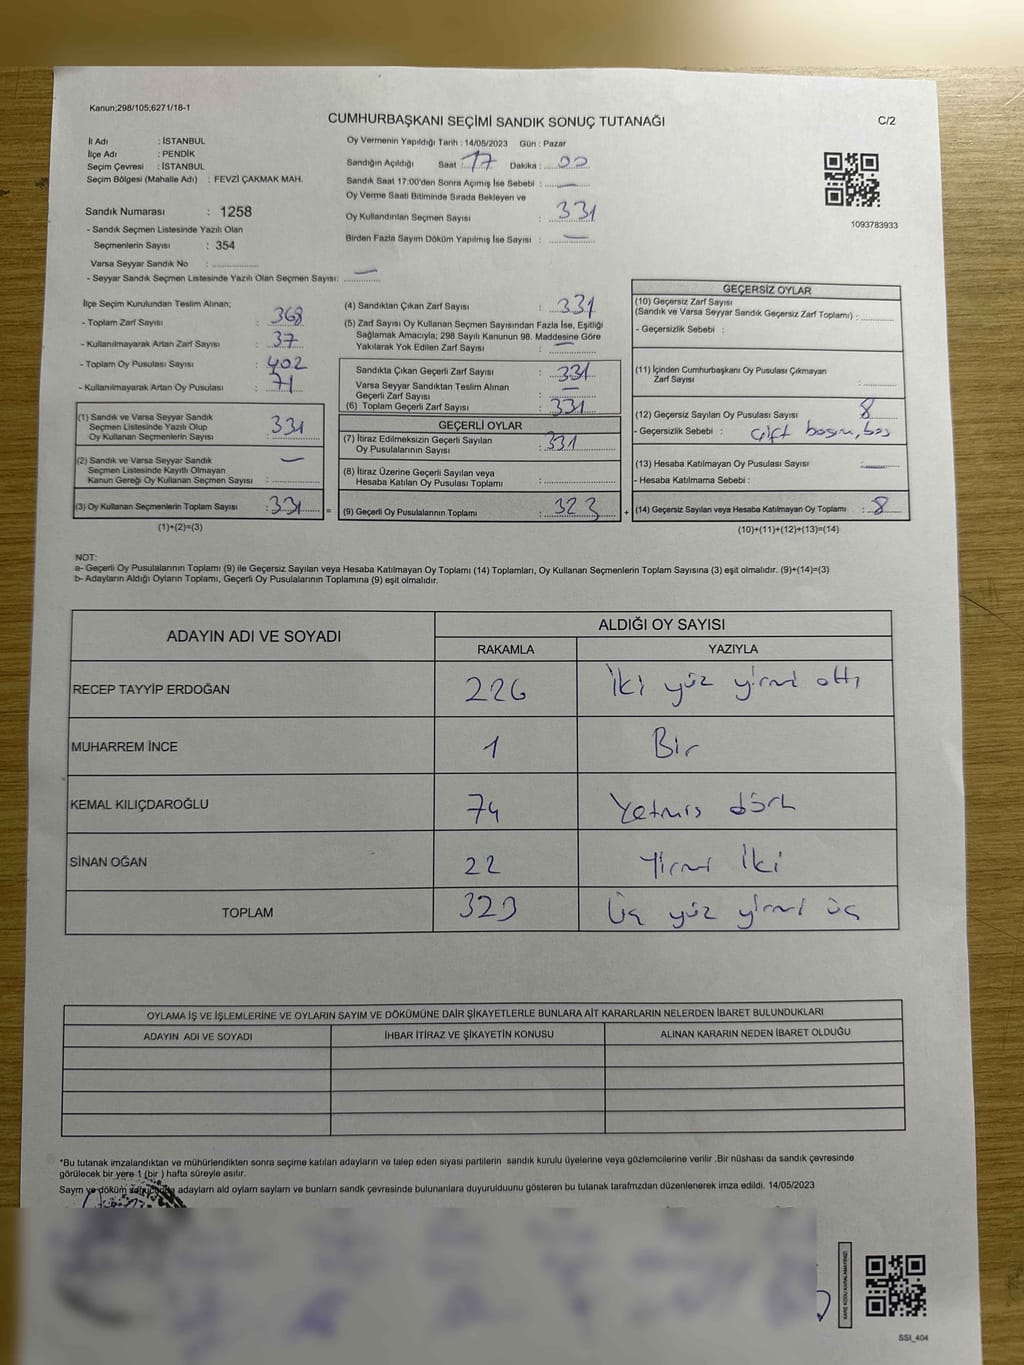 Kanun;298/105,6271/18-1
CUMHURBAŞKANI SEÇİMİ SANDIK SONUÇ TUTANAĞI
C/2
İl Adı : İSTANBUL
İlçe Adı : PENDİK
Seçim Çevresi : İSTANBUL
Seçim Bölgesi (Mahalle Adı) : FEVZİ ÇAKMAK MAH.
Sandık Numarası : 1258
- Sandık Seçmen Listesinde Yazılı Olan
Seçmenlerin Sayısı : 354
Varsa Seyyar Sandık No :
- Seyyar Sandık Seçmen Listesinde Yazılı Olan Seçmen Sayısı: —
Oy Vermenin Yapıldığı Tarih : 14/05/2023 Gün : Pazar
Sandığın Açıldığı Saat : 17 Dakika : 00
Sandık Saat 17:00'den Sonra Açımış İse Sebebi : —
Oy Verme Saati Bitiminde Sırada Bekleyen ve
Oy Kullandırılan Seçmen Sayısı : 331
Birden Fazla Sayım Döküm Yapılmış İse Sayısı : —
1093783933
İlçe Seçim Kurulundan Teslim Alınan;
- Toplam Zarf Sayısı : 368
- Kullanılmayarak Artan Zarf Sayısı : 37
- Toplam Oy Pusulası Sayısı : 402
- Kullanılmayarak Artan Oy Pusulası : 71
(1) Sandık ve Varsa Seyyar Sandık
Seçmen Listesinde Yazılı Olup
Oy Kullanan Seçmenlerin Sayısı : 331
(2) Sandık ve Varsa Seyyar Sandık
Seçmen Listesinde Kayıtlı Olmayan
Kanun Gereği Oy Kullanan Seçmen Sayısı : —
(3) Oy Kullanan Seçmenlerin Toplam Sayısı : 331 =
(1)+(2)=(3)
(4) Sandıktan Çıkan Zarf Sayısı : 331
(5) Zarf Sayısı Oy Kullanan Seçmen Sayısından Fazla İse, Eşitliği
Sağlamak Amacıyla; 298 Sayılı Kanunun 98. Maddesine Göre
Yakılarak Yok Edilen Zarf Sayısı : —
Sandıkta Çıkan Geçerli Zarf Sayısı : 331
Varsa Seyyar Sandıktan Teslim Alınan
Geçerli Zarf Sayısı : —
(6) Toplam Geçerli Zarf Sayısı : 331
GEÇERLİ OYLAR
(7) İtiraz Edilmeksizin Geçerli Sayılan
Oy Pusulalarının Sayısı : 331
(8) İtiraz Üzerine Geçerli Sayılan veya
Hesaba Katılan Oy Pusulası Toplamı :
(9) Geçerli Oy Pusulalarının Toplamı : 323 +
GEÇERSİZ OYLAR
(10) Geçersiz Zarf Sayısı
(Sandık ve Varsa Seyyar Sandık Geçersiz Zarf Toplamı) :
- Geçersizlik Sebebi :
(11) İçinden Cumhurbaşkanı Oy Pusulası Çıkmayan
Zarf Sayısı :
(12) Geçersiz Sayılan Oy Pusulası Sayısı : 8
- Geçersizlik Sebebi : Çift basım, boş
(13) Hesaba Katılmayan Oy Pusulası Sayısı : —
- Hesaba Katılmama Sebebi :
(14) Geçersiz Sayılan veya Hesaba Katılmayan Oy Toplamı : 8
(10)+(11)+(12)+(13)=(14)
NOT:
a- Geçerli Oy Pusulalarının Toplamı (9) ile Geçersiz Sayılan veya Hesaba Katılmayan Oy Toplamı (14) Toplamları, Oy Kullanan Seçmenlerin Toplam Sayısına (3) eşit olmalıdır. (9)+(14)=(3)
b- Adayların Aldığı Oyların Toplamı, Geçerli Oy Pusulalarının Toplamına (9) eşit olmalıdır.
ADAYIN ADI VE SOYADI
ALDIĞI OY SAYISI
RAKAMLA YAZIYLA
RECEP TAYYİP ERDOĞAN 226 İki yüz yirmi altı
MUHARREM İNCE 1 Bir
KEMAL KILIÇDAROĞLU 74 Yetmiş dört
SİNAN OĞAN 22 Yirmi İki
TOPLAM 323 Üç yüz yirmi üç
OYLAMA İŞ VE İŞLEMLERİNE VE OYLARIN SAYIM VE DÖKÜMÜNE DAİR ŞİKAYETLERLE BUNLARA AİT KARARLARIN NELERDEN İBARET BULUNDUKLARI
ADAYIN ADI VE SOYADI İHBAR İTİRAZ VE ŞİKAYETİN KONUSU ALINAN KARARIN NEDEN İBARET OLDUĞU
*Bu tutanak imzalandıktan ve mühürlendikten sonra seçime katılan adayların ve talep eden siyasi partilerin sandık kurulu üyelerine veya gözlemcilerine verilir .Bir nüshası da sandık çevresinde
görülecek bir yere 1 (bir ) hafta süreyle asılır.
Sayım ve döküm adayların ald oyların sayların ve bunların sandk çevresinde bulunanlara duyurulduunu gösteren bu tutanak tarafmzdan düzenlenerek imza edildi. 14/05/2023
KARE KODU KARALAMAYINIZ!
SSI_404